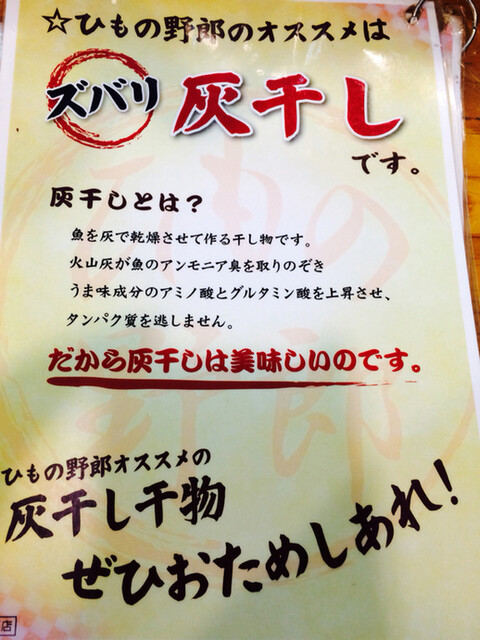 ☆ひもの野郎のオススメは
ズバリ 灰干し
です。
灰干しとは？
魚を灰で乾燥させて作る干し物です。
火山灰が魚のアンモニア臭を取りのぞき
うま味成分のアミノ酸とグルタミン酸を上昇させ、
タンパク質を逃しません。
だから灰干しは美味しいのです。
ひもの野郎オススメの
灰干し干物
ぜひおためしあれ！
店